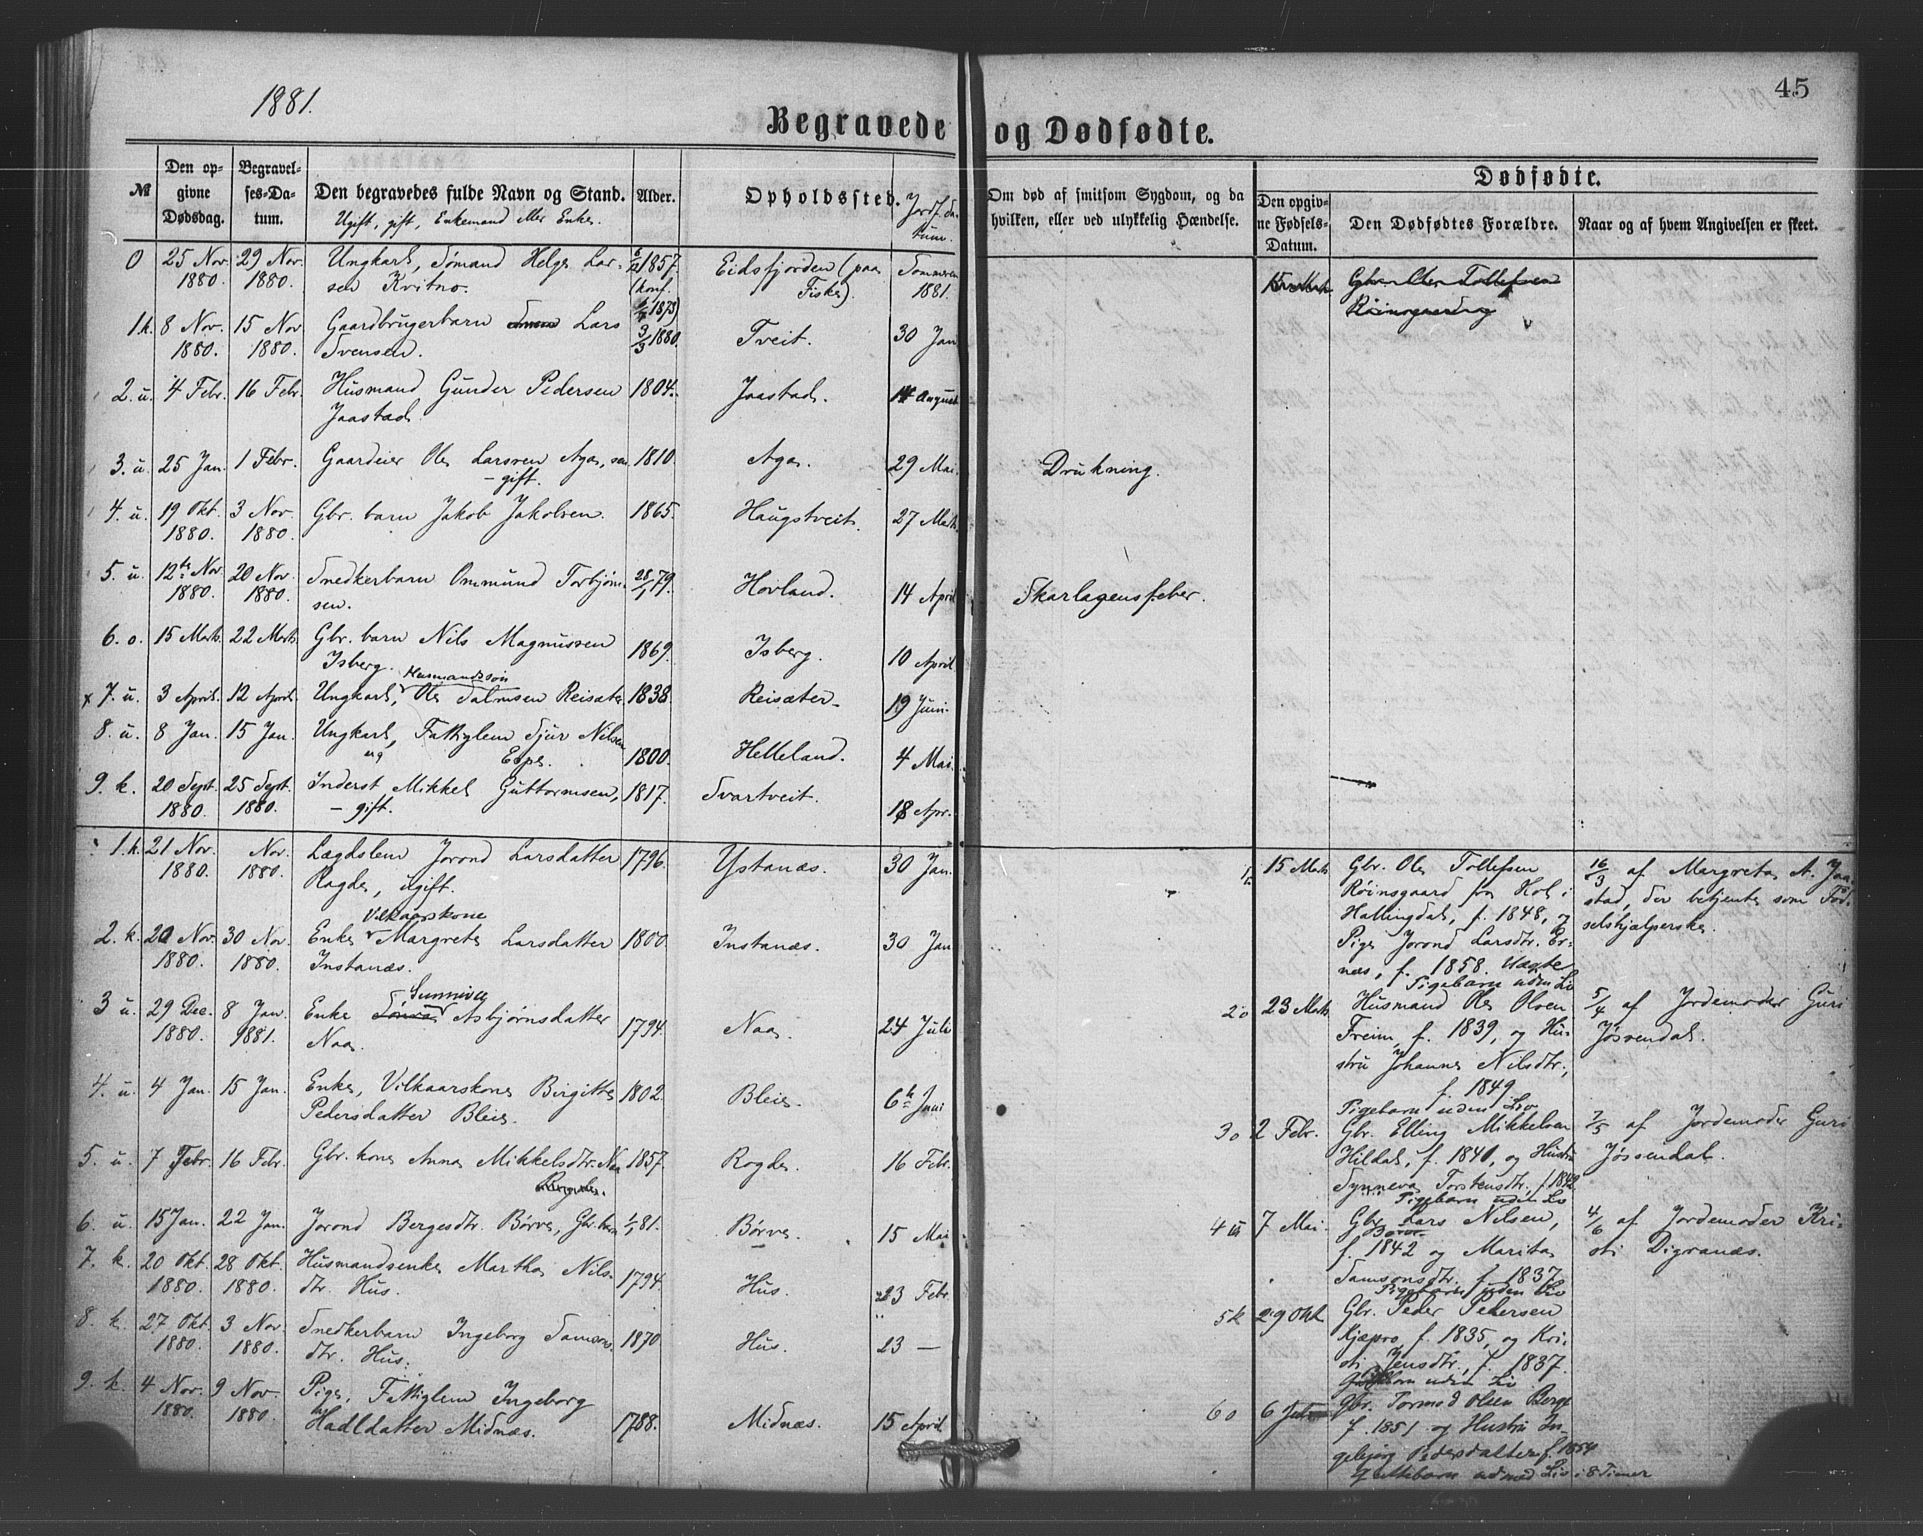 1881.
45
Begravede og Dødfødte.
№
Den opgivne Dødsdag.
Begravelses-Datum.
Den begravedes fulde Navn og Stand.
Ugift, gift, Enkemand eller Enke.
Alder.
Opholdssted.
Jordf. Datum.
Om død af smitsom Sygdom, og da hvilken, eller ved ulykkelig Hændelse.
Dødfødte.
Den opgivne Fødsels-Datum.
Den Dødfødtes Forældre.
Naar og af hvem Angivelsen er skeet.
0 25 Nov. 29 Nov. Ungkarl, Sømand Helge Lar- 1857. Eidsfjorden (paa Sommeren
1880. 1880. sen Kvitno. (konf. 1873) Fiske). 1881.
1.k. 8 Nov. 15 Nov Gaardbrugerbarn Lars 3/3 1880. Tveit. 30 Jan
1880. 1880. Svensen.
2.u. 4 Febr. 16 Febr. Husmand Gunder Pedersen 1804. Jaastad. 14 August
Jaastad.
3.u. 25 Jan. 1 Febr. Gaardeier Ole Larsen Aga, 1810. Aga. 29 Mai. Drukning.
– gift.
4.u. 19 Okt. 3 Nov. Gbr. barn Jakob Jakobsen. 1865. Haugstveit. 27 Marts
1880. 1880.
5.u. 12te Nov. 20 Nov. Snedkerbarn Ommund Torbjørn- 28/1 79. Hovland. 14 April Skarlagensfeber.
1880. 1880. sen.
6.o. 15 Marts. 22 Marts. Gbr. barn Nils Magnussen 1869. Isberg. 10 April
Isberg.
Husmandssøn
x 7.u. 3 April. 12 April. Ungkarl, Ole Salmsen Reisæter 1838. Reisæter 19 Juni
8.u. 8 Jan. 15 Jan. Ungkarl, Fattiglem Sjur Nilsen 1800. Helleland. 4 Mai.
Espe.
9.k. 20 Sept. 25 Sept. Inderst Mikkel Guttormsen, 1817. Svartveit. 18 Apr.
1880. 1880. – gift.
1.k. 21 Nov. Nov. Lægdslem Jorond Larsdatter 1796. Ystanæs. 30 Jan.
1880. 1880. Ragde, ugift.
Vilkaarskone
2.k. 20 Nov. 30 Nov. Enke Margrete Larsdatter 1800. Instanæs. 30 Jan
1880. 1880. Instanæs.
Sunniva
3 u. 29 Dec. 8 Jan. Enke Asbjørnsdatter 1794. Naa. 24 Juli
1880. 1881. Naa.
4.u. 4 Jan. 15 Jan. Enke, Vilkaarskone Birgitte 1802. Bleie. 6te Juni
Pedersdatter Bleie.
5.u. 7 Febr. 16 Febr. Gbr. kone Anna Mikkelsdtr. Naa 1857. Rogde. 16 Febr.
6.u. 15 Jan. 22 Jan. Jorond Bergesdtr. Børve, Gbr. barn 1/1 81. Børve. 15 Mai
7.k. 20 Okt. 28 Okt. Husmandsenke Martha Nils- 1794. Hus. 23 Febr.
1880. 1880. dtr. Hus.
8.k. 27 Okt. 3 Nov. Snedkerbarn Ingeborg Samsons- 1870 Hus. 23 —
1880. 1880. dtr. Hus.
9.k. 4 Nov. 9 Nov. Pige, Fattiglem Ingeborg 1788. Midnæs. 15 April
1880. 1880. Hadldatter Midnæs.
15 Marts Gbr. Ole Tollefsen
Røinsgaard
15 Marts Gbr. Ole Tollefsen 16/3 af Margreta A. Jaa-
Røinsgaard fra Hol i stad, der betjente som Fød-
Hallingdal, f. 1848, og selshjælperske.
Pige Jorond Larsdtr. Er-
næs, f. 1858. Uægte
Pigebarn uden Liv
2 o 23 Marts Husmand Ole Olsen 5/4 af Jordemoder Guri
Freim, f. 1839, og Hu- Jøsendal.
stru Johanna Nilsdtr.,
f. 1849.
Pigebarn uden Liv
3 o 2 Febr. Gbr. Elling Mikkelsen 7/5 af Jordemoder Guri
Hildal, f. 1840, og Hustru Jøsendal.
Synneva Torstensdtr. f. 1842
Pigebarn uden Liv
4 u 7 Mai. Gbr. Lars Nilsen, 4/6 af Jordemoder Kri-
Børve
f. 1842 og Marita sti Digranæs.
Samsonsdtr. f. 1837.
Pigebarn uden Liv
5 k 29 Okt Gbr. Peder Pedersen
Kjæpso, f. 1835, og Kri-
sti Jensdtr., f. 1837.
uden Liv
6 o 6 Juli Gbr. Tormod Olsen Berge
f. 1851 og Hustru In-
gebjørg Pedersdatter f. 1854
Guttebarn med Liv i 8 Timer